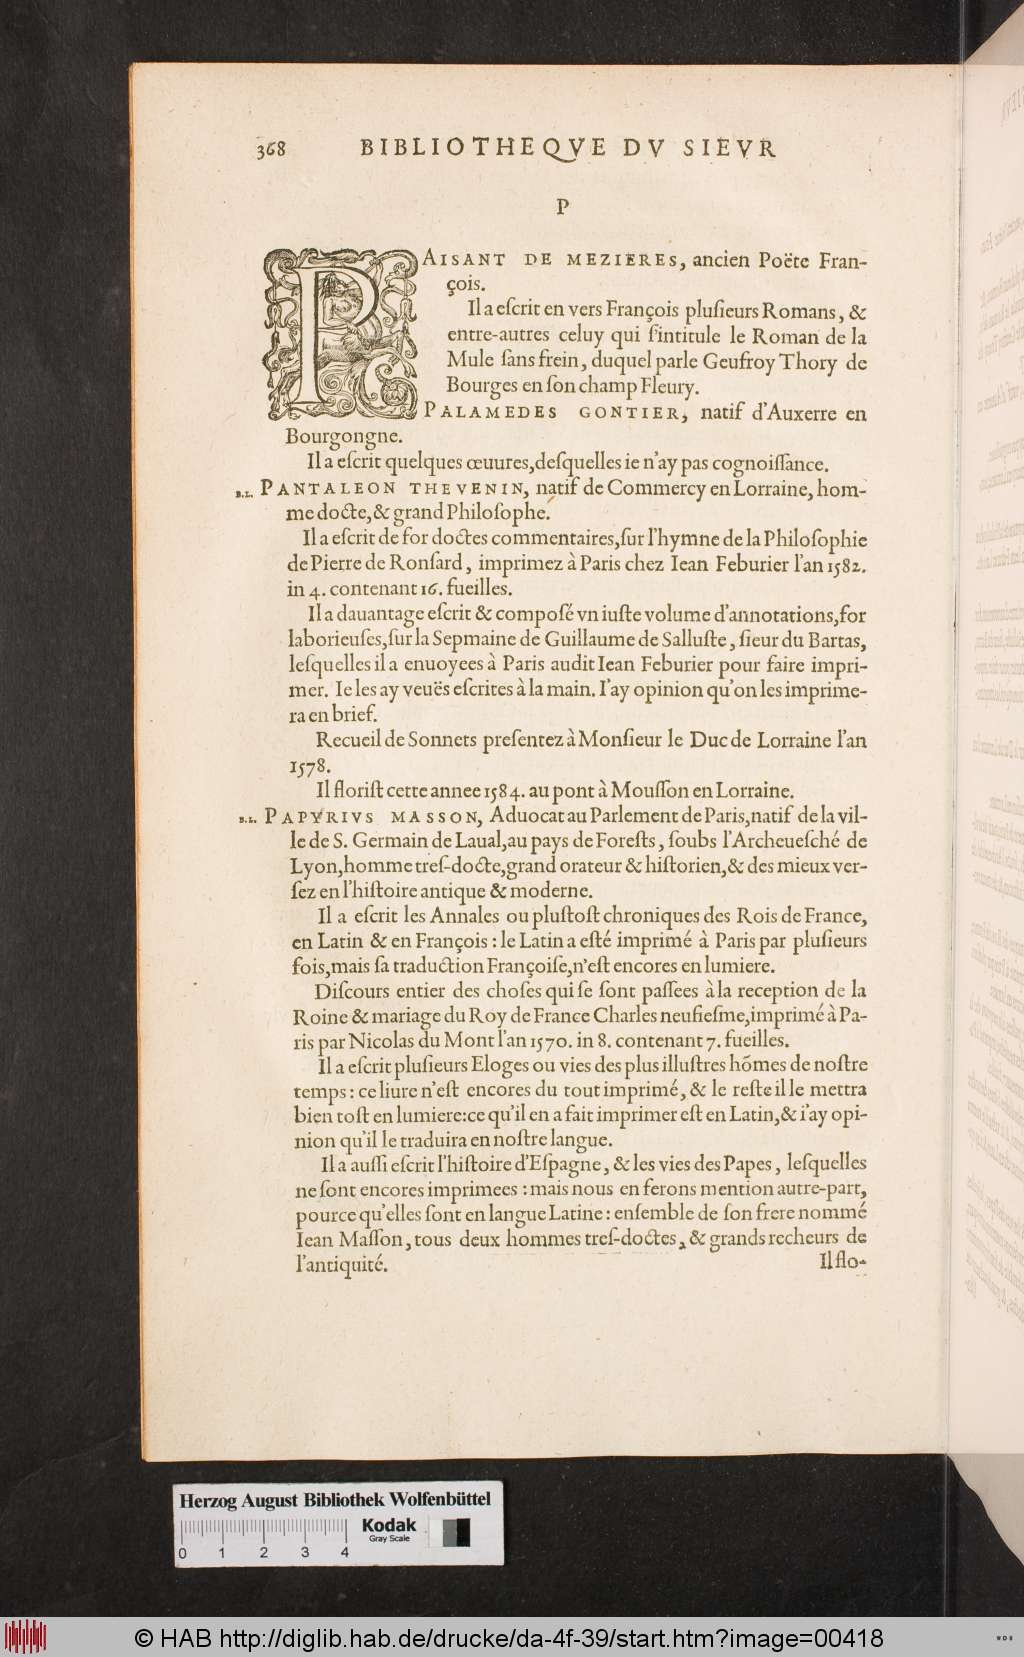 368 BIBLIOTHEQVE DV SIEVR
P
PAISANT DE MEZIERES, ancien Poëte Fran-
çois.
Il a eſcrit en vers François pluſieurs Romans, &
entre-autres celuy qui ſ'intitule le Roman de la
Mule ſans frein, duquel parle Geufroy Thory de
Bourges en ſon champ Fleury.
PALAMEDES GONTIER, natif d'Auxerre en
Bourgongne.
Il a eſcrit quelques œuures, deſquelles ie n'ay pas cognoiſſance.
B.L. PANTALEON THEVENIN, natif de Commercy en Lorraine, hom-
me docte, & grand Philoſophe.
Il a eſcrit de for doctes commentaires, ſur l'hymne de la Philoſophie
de Pierre de Ronſard, imprimez à Paris chez Iean Feburier l'an 1582.
in 4. contenant 16. fueilles.
Il a dauantage eſcrit & compoſé vn iuſte volume d'annotations, for
laborieuſes, ſur la Sepmaine de Guillaume de Salluſte, ſieur du Bartas,
leſquelles il a enuoyees à Paris audit Iean Feburier pour faire impri-
mer. Ie les ay veuës eſcrites à la main. I'ay opinion qu'on les imprime-
ra en brief.
Recueil de Sonnets preſentez à Monſieur le Duc de Lorraine l'an
1578.
Il floriſt cette annee 1584. au pont à Mouſſon en Lorraine.
B.L. PAPYRIVS MASSON, Aduocat au Parlement de Paris, natif de la vil-
le de S. Germain de Laual, au pays de Foreſts, ſoubs l'Archeueſché de
Lyon, homme treſ-docte, grand orateur & hiſtorien, & des mieux ver-
ſez en l'hiſtoire antique & moderne.
Il a eſcrit les Annales ou pluſtoſt chroniques des Rois de France,
en Latin & en François : le Latin a eſté imprimé à Paris par pluſieurs
fois, mais ſa traduction Françoiſe, n'eſt encores en lumiere.
Diſcours entier des choſes qui ſe ſont paſſees à la reception de la
Roine & mariage du Roy de France Charles neufieſme, imprimé à Pa-
ris par Nicolas du Mont l'an 1570. in 8. contenant 7. fueilles.
Il a eſcrit pluſieurs Eloges ou vies des plus illuſtres hõmes de noſtre
temps : ce liure n'eſt encores du tout imprimé, & le reſte il le mettra
bien toſt en lumiere: ce qu'il en a fait imprimer eſt en Latin, & i'ay opi-
nion qu'il le traduira en noſtre langue.
Il a auſſi eſcrit l'hiſtoire d'Eſpagne, & les vies des Papes, leſquelles
ne ſont encores imprimees : mais nous en ferons mention autre-part,
pource qu'elles ſont en langue Latine : enſemble de ſon frere nommé
Iean Maſſon, tous deux hommes treſ-doctes, & grands recheurs de
l'antiquité. Il flo-
Herzog August Bibliothek Wolfenbüttel
Kodak
Gray Scale
0 1 2 3 4
© HAB http://diglib.hab.de/drucke/da-4f-39/start.htm?image=00418